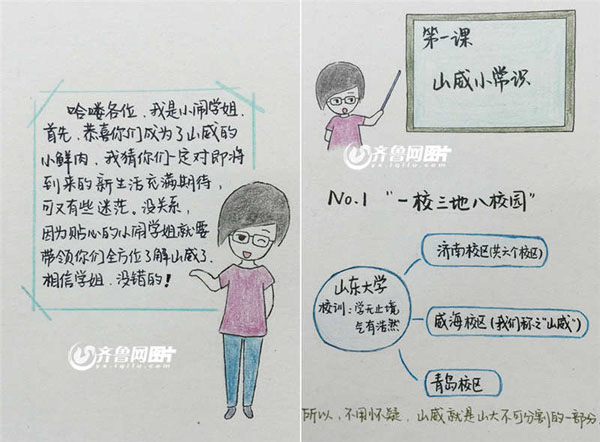 哈喽各位，我是小闹学姐，
首先，恭喜你们成为了山威的
小鲜肉，我猜你们一定对即将
到来的新生活充满期待，
可又有些迷茫。没关系，
因为贴心的小闹学姐就要
带领你们全方位了解山威了，
相信学姐，没错的！
齐鲁网图片
第一课
山威小常识
齐鲁网图片
No.1 "一校三地八校园"
山东大学
校训：学无止境
气有浩然
济南校区(共六个校区)
威海校区(我们称之"山威")
青岛校区
所以，不用怀疑，山威就是山大不可分割的一部分。